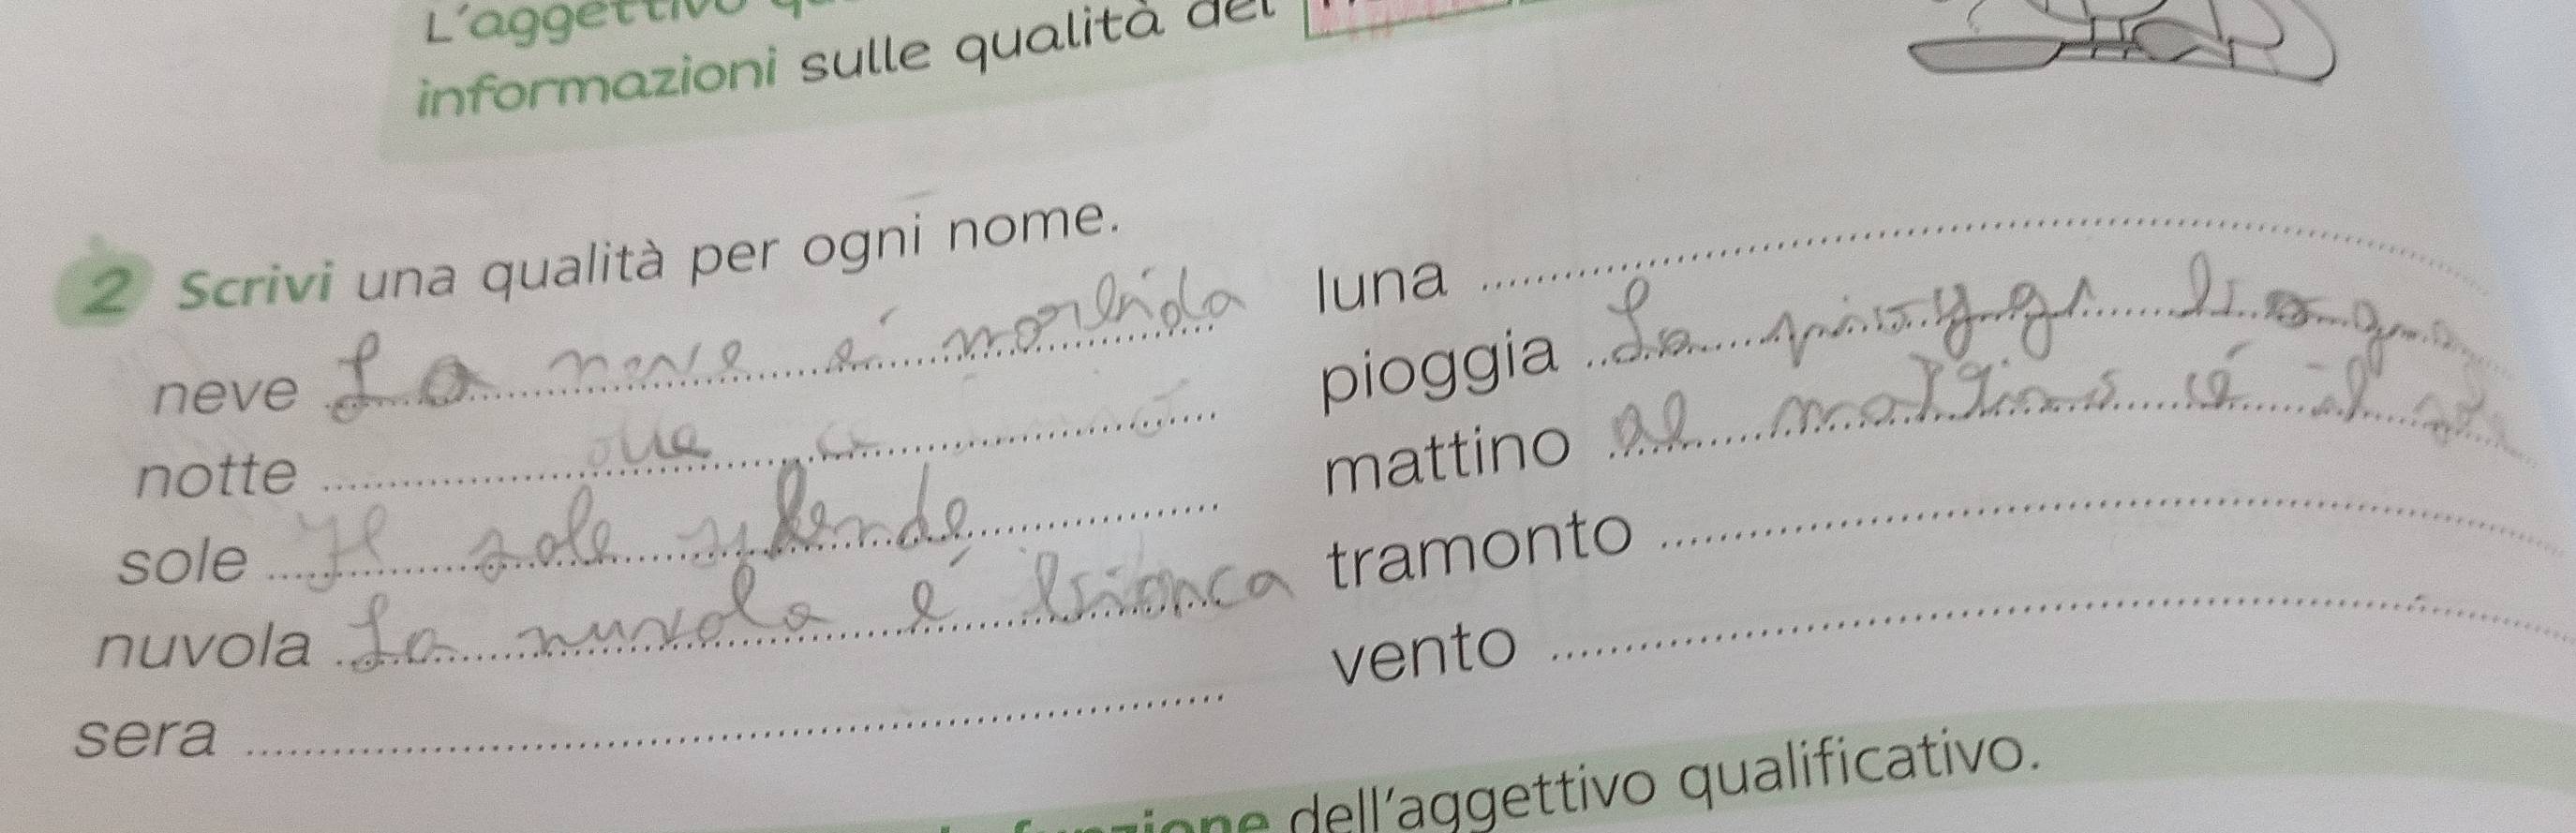 L'aggettivo
informazioni sulle qualità del
2 Scrivi una qualità per ogni nome.
neve La neve è morbida
notte
sole Il sole splende
nuvola La nuvola è bianca
sera
luna
pioggia La
mattino al mattino è il
tramonto
vento
dell'aggettivo qualificativo.